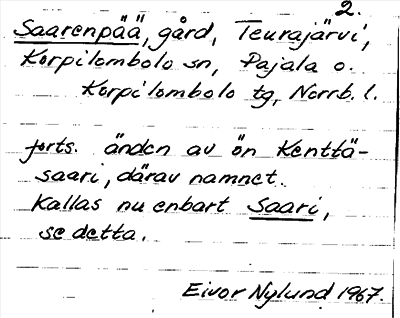 2.
Saarenpää, gård, Teurajärvi,
Korpilombolo sn, Pajala o.
Korpilombolo tg, Norrb. l.
forts. änden av ön Kenttä-
saari, därav namnet.
Kallas nu enbart Saari,
se detta.
Eivor Nylund 1967.